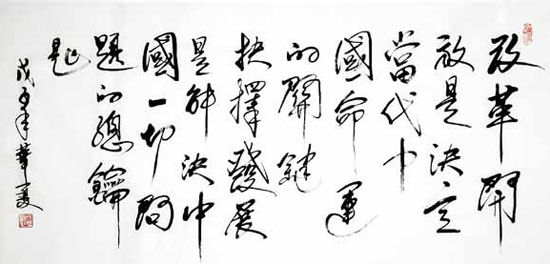 改革開
放是決定
當代中
國命運
的關鍵
抉擇發展
是解決中
國一切問
題的總鑰
匙
戊子年華夏